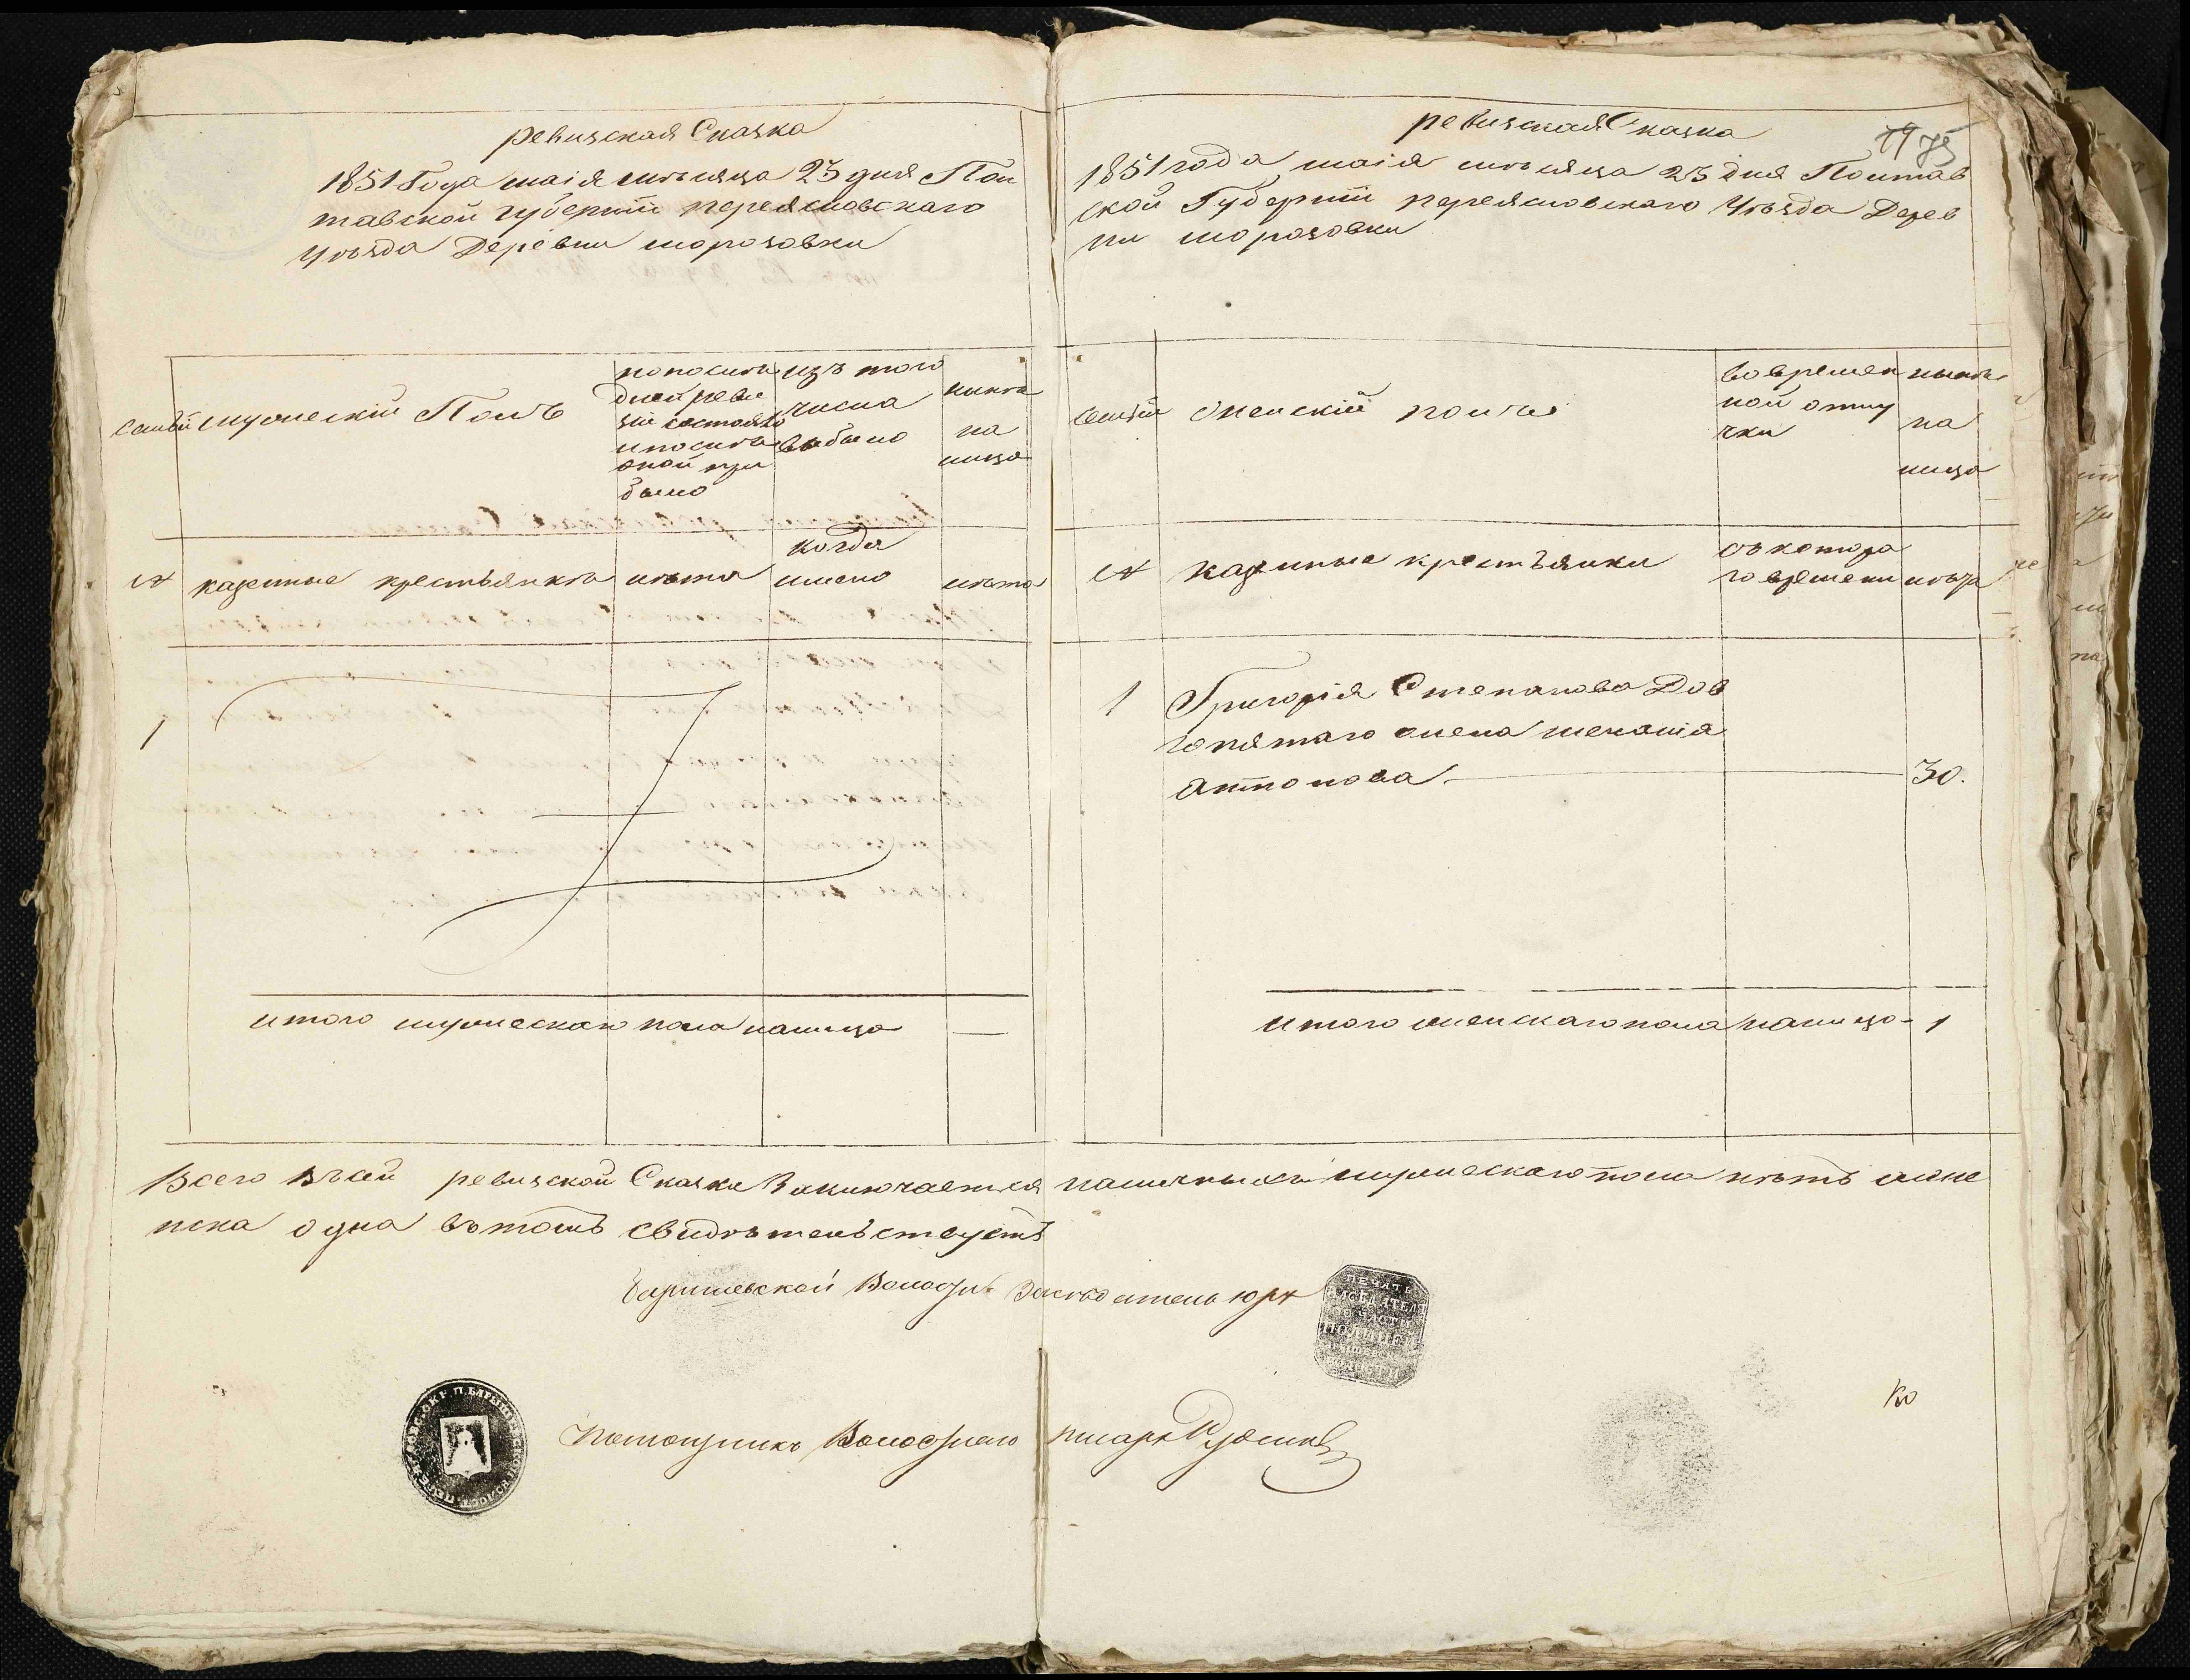 ревизская Сказка
1851 Года маія мѣсяца 23 дня Пол
тавской губерніи переясловскаго
уѣзда Деревни морозовки
семьи
мужескій Полъ
по послѣ
дней реви
зіи состояло
и послѣ
оной при
было
изъ того
числа
выбыло
нынѣ
на
лицо
№
казенные крестьянѣ
лѣта
когда
имено
лѣта
1
итого мужескаго пола налицо —
ревизская Сказка
75
1851 года маія мѣсяца 23 дня Полтав
ской Губерніи переясловскаго уѣзда Дерев
ни морозовки
семьи
женскій полъ
во времен
ной отлу
чки
нынѣ
на
лицо
№
казенные крестьянки
съ котора
го времени
лѣта
1 Григорія Степанова Дов
гопятаго жена меланія
антонова — 30.
итого женскаго пола налицо - 1
Всего въ сей ревизской Сказке Заключается наличныхъ мужескаго пола нѣтъ жене
нска одна въ томъ свидѣтельствуетъ
Баришевской Волости Засѣдатель
ПЕЧАТЬ
ЗАСѢДАТЕЛЯ
ПО ЧАСТИ
ПОЛИЦЕЙ
БАРЫШЕВСКОЙ
ВОЛОСТИ
Помощникъ Волостнаго писаря
Ко